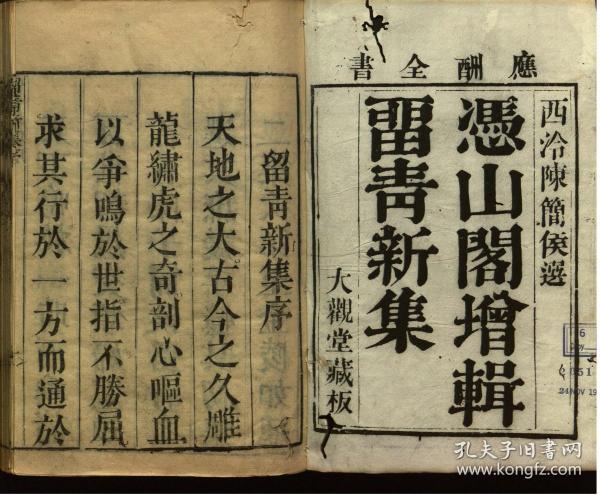 應酬全書
西泠陳簡侯選
憑山閣增輯
留青新集
大觀堂藏板
留青新集序
天地之大古今之久雕
龍繡虎之奇剖心嘔血
以爭鳴於世指不勝屈
求其行於一方而通於
24 NOV 19
孔夫子旧书网
www.kongfz.com